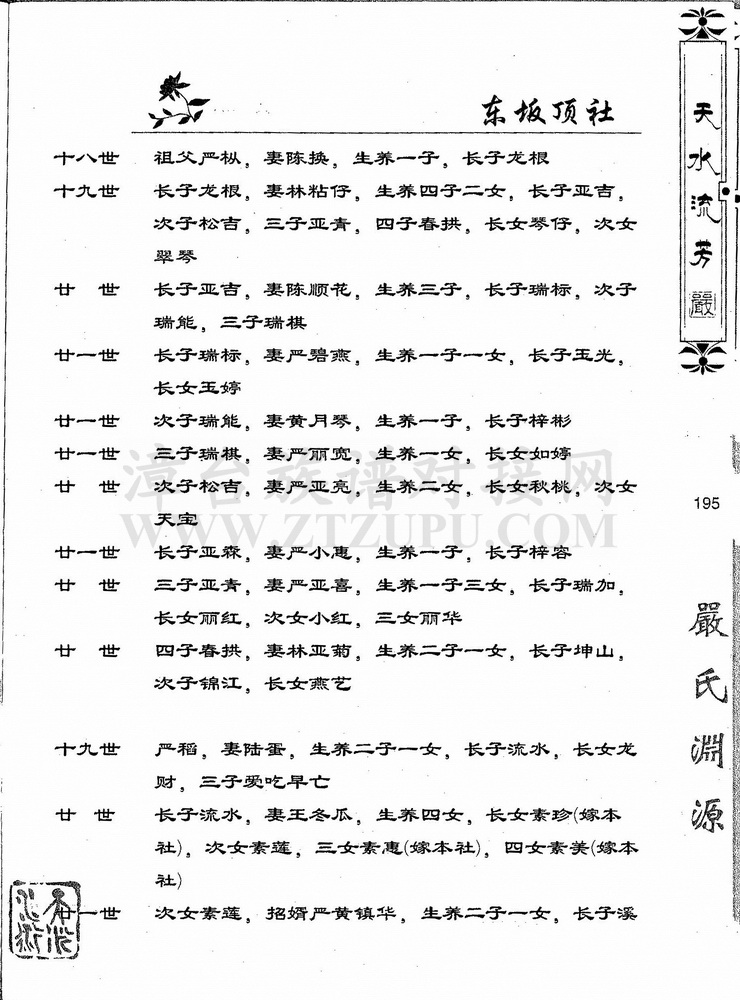 东坂顶社
十八世 祖父严枞，妻陈换，生养一子，长子龙根
十九世 长子龙根，妻林粘仔，生养四子二女，长子亚吉，
次子松吉，三子亚青，四子春拱，长女琴仔，次女
翠琴
廿 世 长子亚吉，妻陈顺花，生养三子，长子瑞标，次子
瑞能，三子瑞棋
廿一世 长子瑞标，妻严碧燕，生养一子一女，长子玉光，
长女玉婷
廿一世 次子瑞能，妻黄月琴，生养一子，长子梓彬
廿一世 三子瑞棋，妻严丽宽，生养一女，长女如婷
廿 世 次子松吉，妻严亚亮，生养二女，长女秋桃，次女
天宝
廿一世 长子亚森，妻严小惠，生养一子，长子梓容
廿 世 三子亚青，妻严亚喜，生养一子三女，长子瑞加，
长女丽红，次女小红，三女丽华
廿 世 四子春拱，妻林亚菊，生养二子一女，长子坤山，
次子锦江，长女燕艺
十九世 严稻，妻陆蛋，生养二子一女，长子流水，长女龙
财，三子爱吃早亡
廿 世 长子流水，妻王冬瓜，生养四女，长女素珍(嫁本
社)，次女素莲，三女素惠(嫁本社)，四女素美(嫁本
社)
廿一世 次女素莲，招婿严黄镇华，生养二子一女，长子溪
天水流芳
嚴
195
嚴氏淵源
漳台族谱对接网
WWW.ZTZUPU.COM